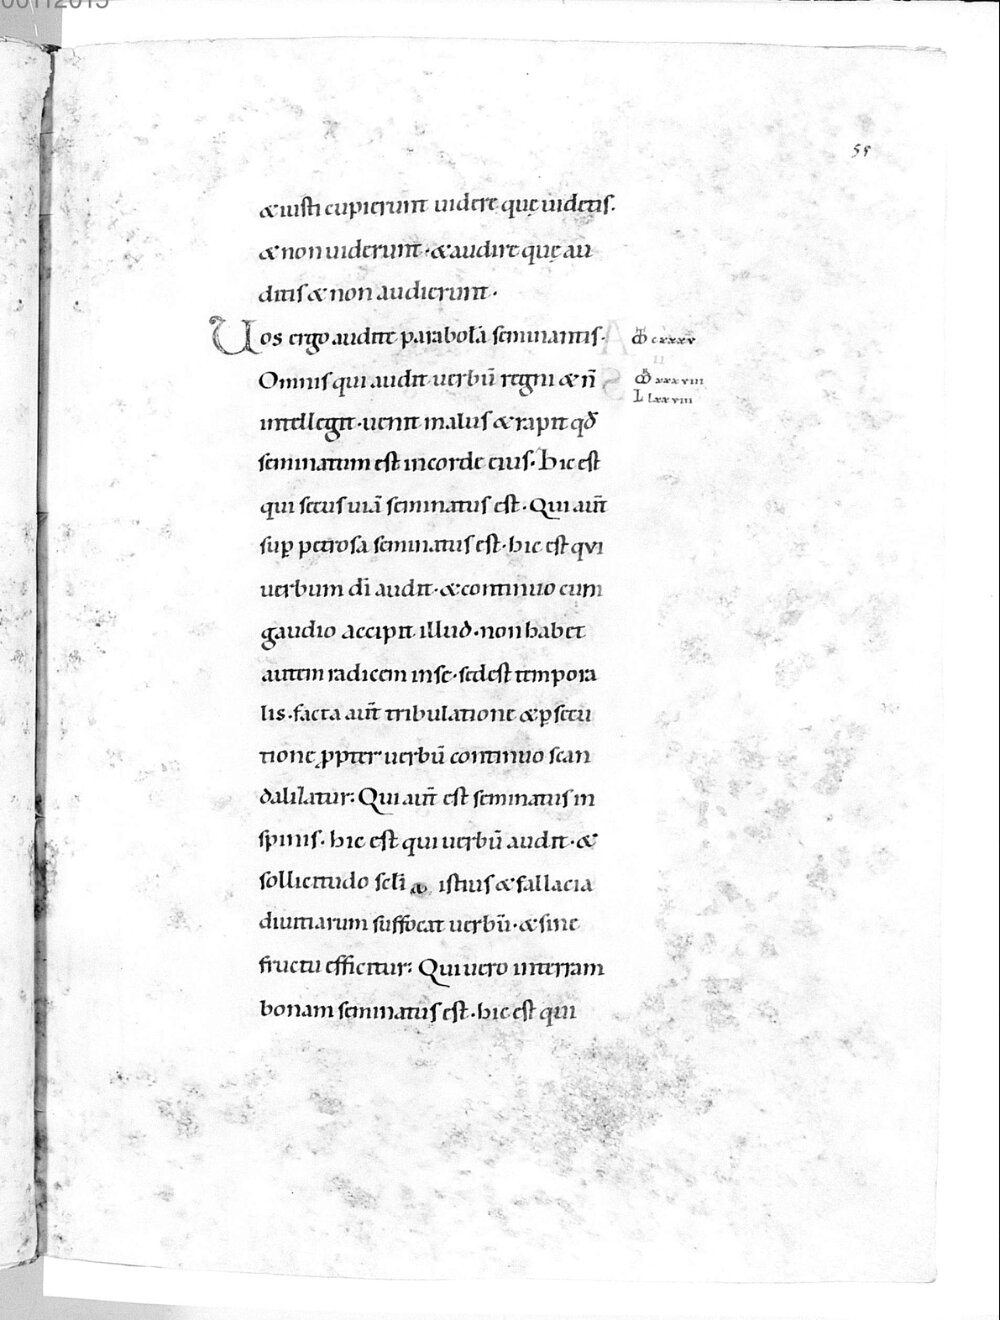 55
& iusti cupierunt uidere quę uidetis.
& non uiderunt · & audire quę au
ditis & non audierunt ·
Uos ergo audite parabolā seminantis ·
cxxxv
Omnis qui audit uerbū regni & n̄
xxxviii
L lxxviii
intellegit · uenit malus & rapit qđ
seminatum est in corde eius · hic est
qui secus uiā seminatus est · Qui aut̄
sup̱ petrosa seminatus est · hic est qui
uerbum dī audit · & continuo cum
gaudio accipit illud · non habet
autem radicem in se · sed est tempora
lis · facta aut̄ tribulatione & p̱secu
tione ꝓpter uerbū continuo scan
dalizatur: Qui aut̄ est seminatus in
spinis · hic est qui uerbū audit · &
sollicitudo sc̄li istius & fallacia
diuitiarum suffocat uerbū · & sine
fructu efficitur: Qui uero in terram
bonam seminatus est · hic est qui